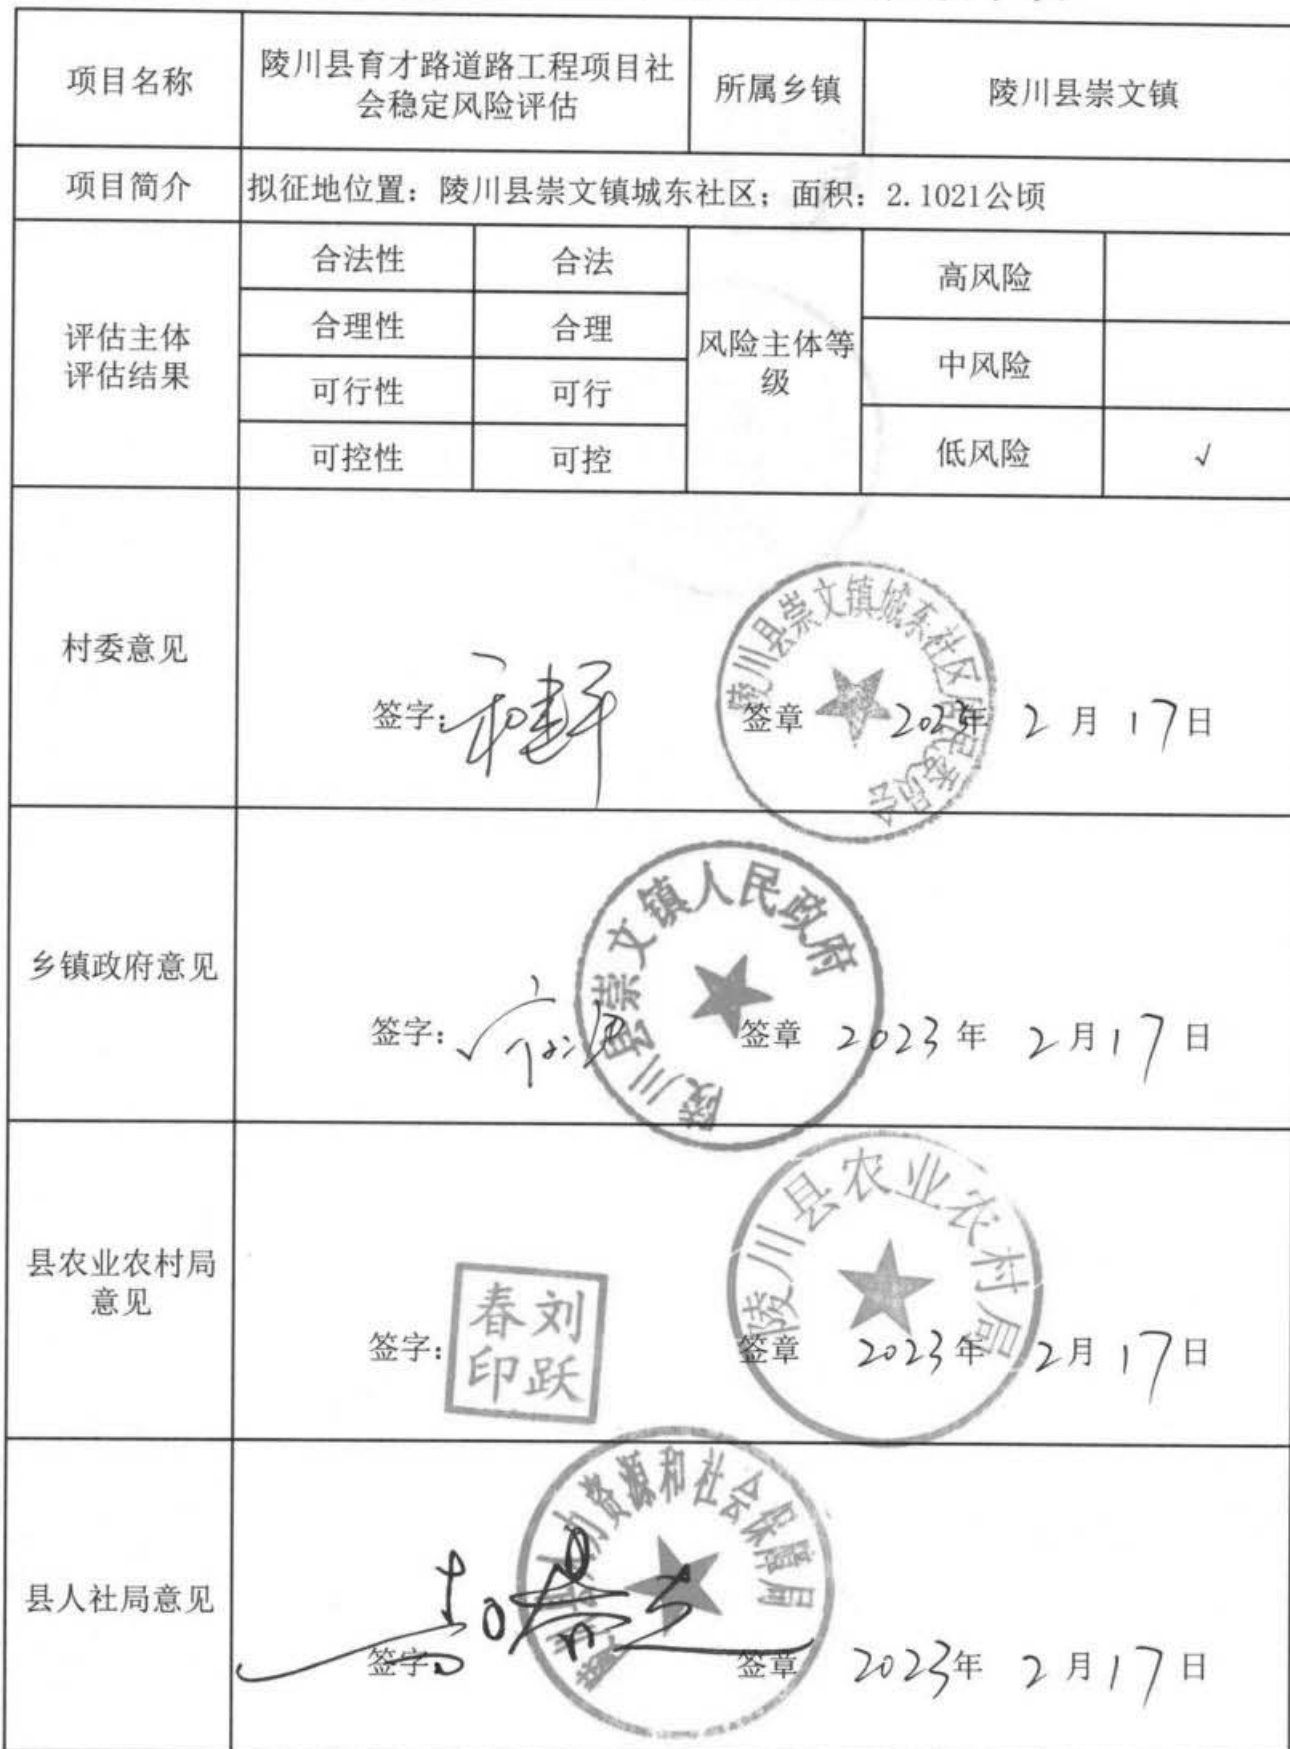 项目名称
陵川县育才路道路工程项目社
会稳定风险评估
所属乡镇
陵川县崇文镇
项目简介
拟征地位置：陵川县崇文镇城东社区；面积：2.1021公顷
评估主体
评估结果
合法性
合法
合理性
合理
可行性
可行
可控性
可控
风险主体等
级
高风险
中风险
低风险
√
村委意见
签字：
签章
2023年 2 月 17日
陵川县崇文镇城东社区居民委员会
乡镇政府意见
签字：
签章
2023 年 2 月 17 日
陵川县崇文镇人民政府
县农业农村局
意见
签字：
刘跃
春印
签章
2023年 2月 17日
陵川县农业农村局
县人社局意见
签字
签章
2023年 2 月 17日
人力资源和社会保障局